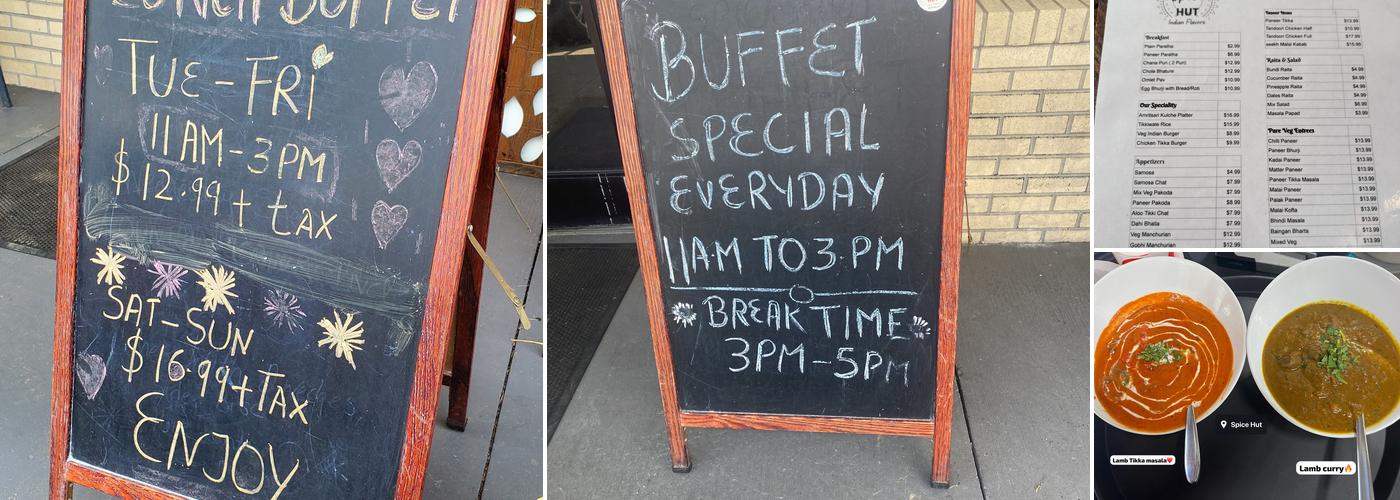 LUNCH BUFFET
TUE-FRi
11 AM-3PM
$12.99+ tax
SAT-SUN
$16.99+TAX
ENJOY
BUFFET
SPECIAL
EVERYDAY
11AM TO 3.PM
BREAK TIME
3PM-5PM
HUT
Indian Flavors
Breakfast
Plain Paratha $2.99
Paneer Paratha $6.99
Chana Puri ( 2 Puri) $12.99
Chole Bhature $12.99
Omlet Pav $10.99
Egg Bhurji with Bread/Roti $10.99
Our Speciality
Amritsari Kulche Platter $16.99
Tikkiwale Rice $15.99
Veg Indian Burger $8.99
Chicken Tikka Burger $9.99
Appetizers
Samosa $4.99
Samosa Chat $7.99
Mix Veg Pakoda $7.99
Paneer Pakoda $8.99
Aloo Tikki Chat $7.99
Dahi Bhalla $7.99
Veg Manchurian $12.99
Gobhi Manchurian $12.99
Paneer Tikka $13.99
Tandoori Chicken Half $10.99
Tandoori Chicken Full $17.99
seekh Malai Kabab $15.99
Raita & Salad
Bundi Raita $4.99
Cucumber Raita $4.99
Pineapple Raita $4.99
Dates Raita $4.99
Mix Salad $6.99
Masala Papad $3.99
Pure Veg Entrees
Chilli Paneer $13.99
Paneer Bhurji $13.99
Kadai Paneer $13.99
Matter Paneer $13.99
Paneer Tikka Masala $13.99
Malai Paneer $13.99
Palak Paneer $13.99
Malai Kofta $13.99
Bhindi Masala $13.99
Baingan Bharta $13.99
Mixed Veg $13.99
Spice Hut
Lamb Tikka masala❤️
Lamb curry🔥